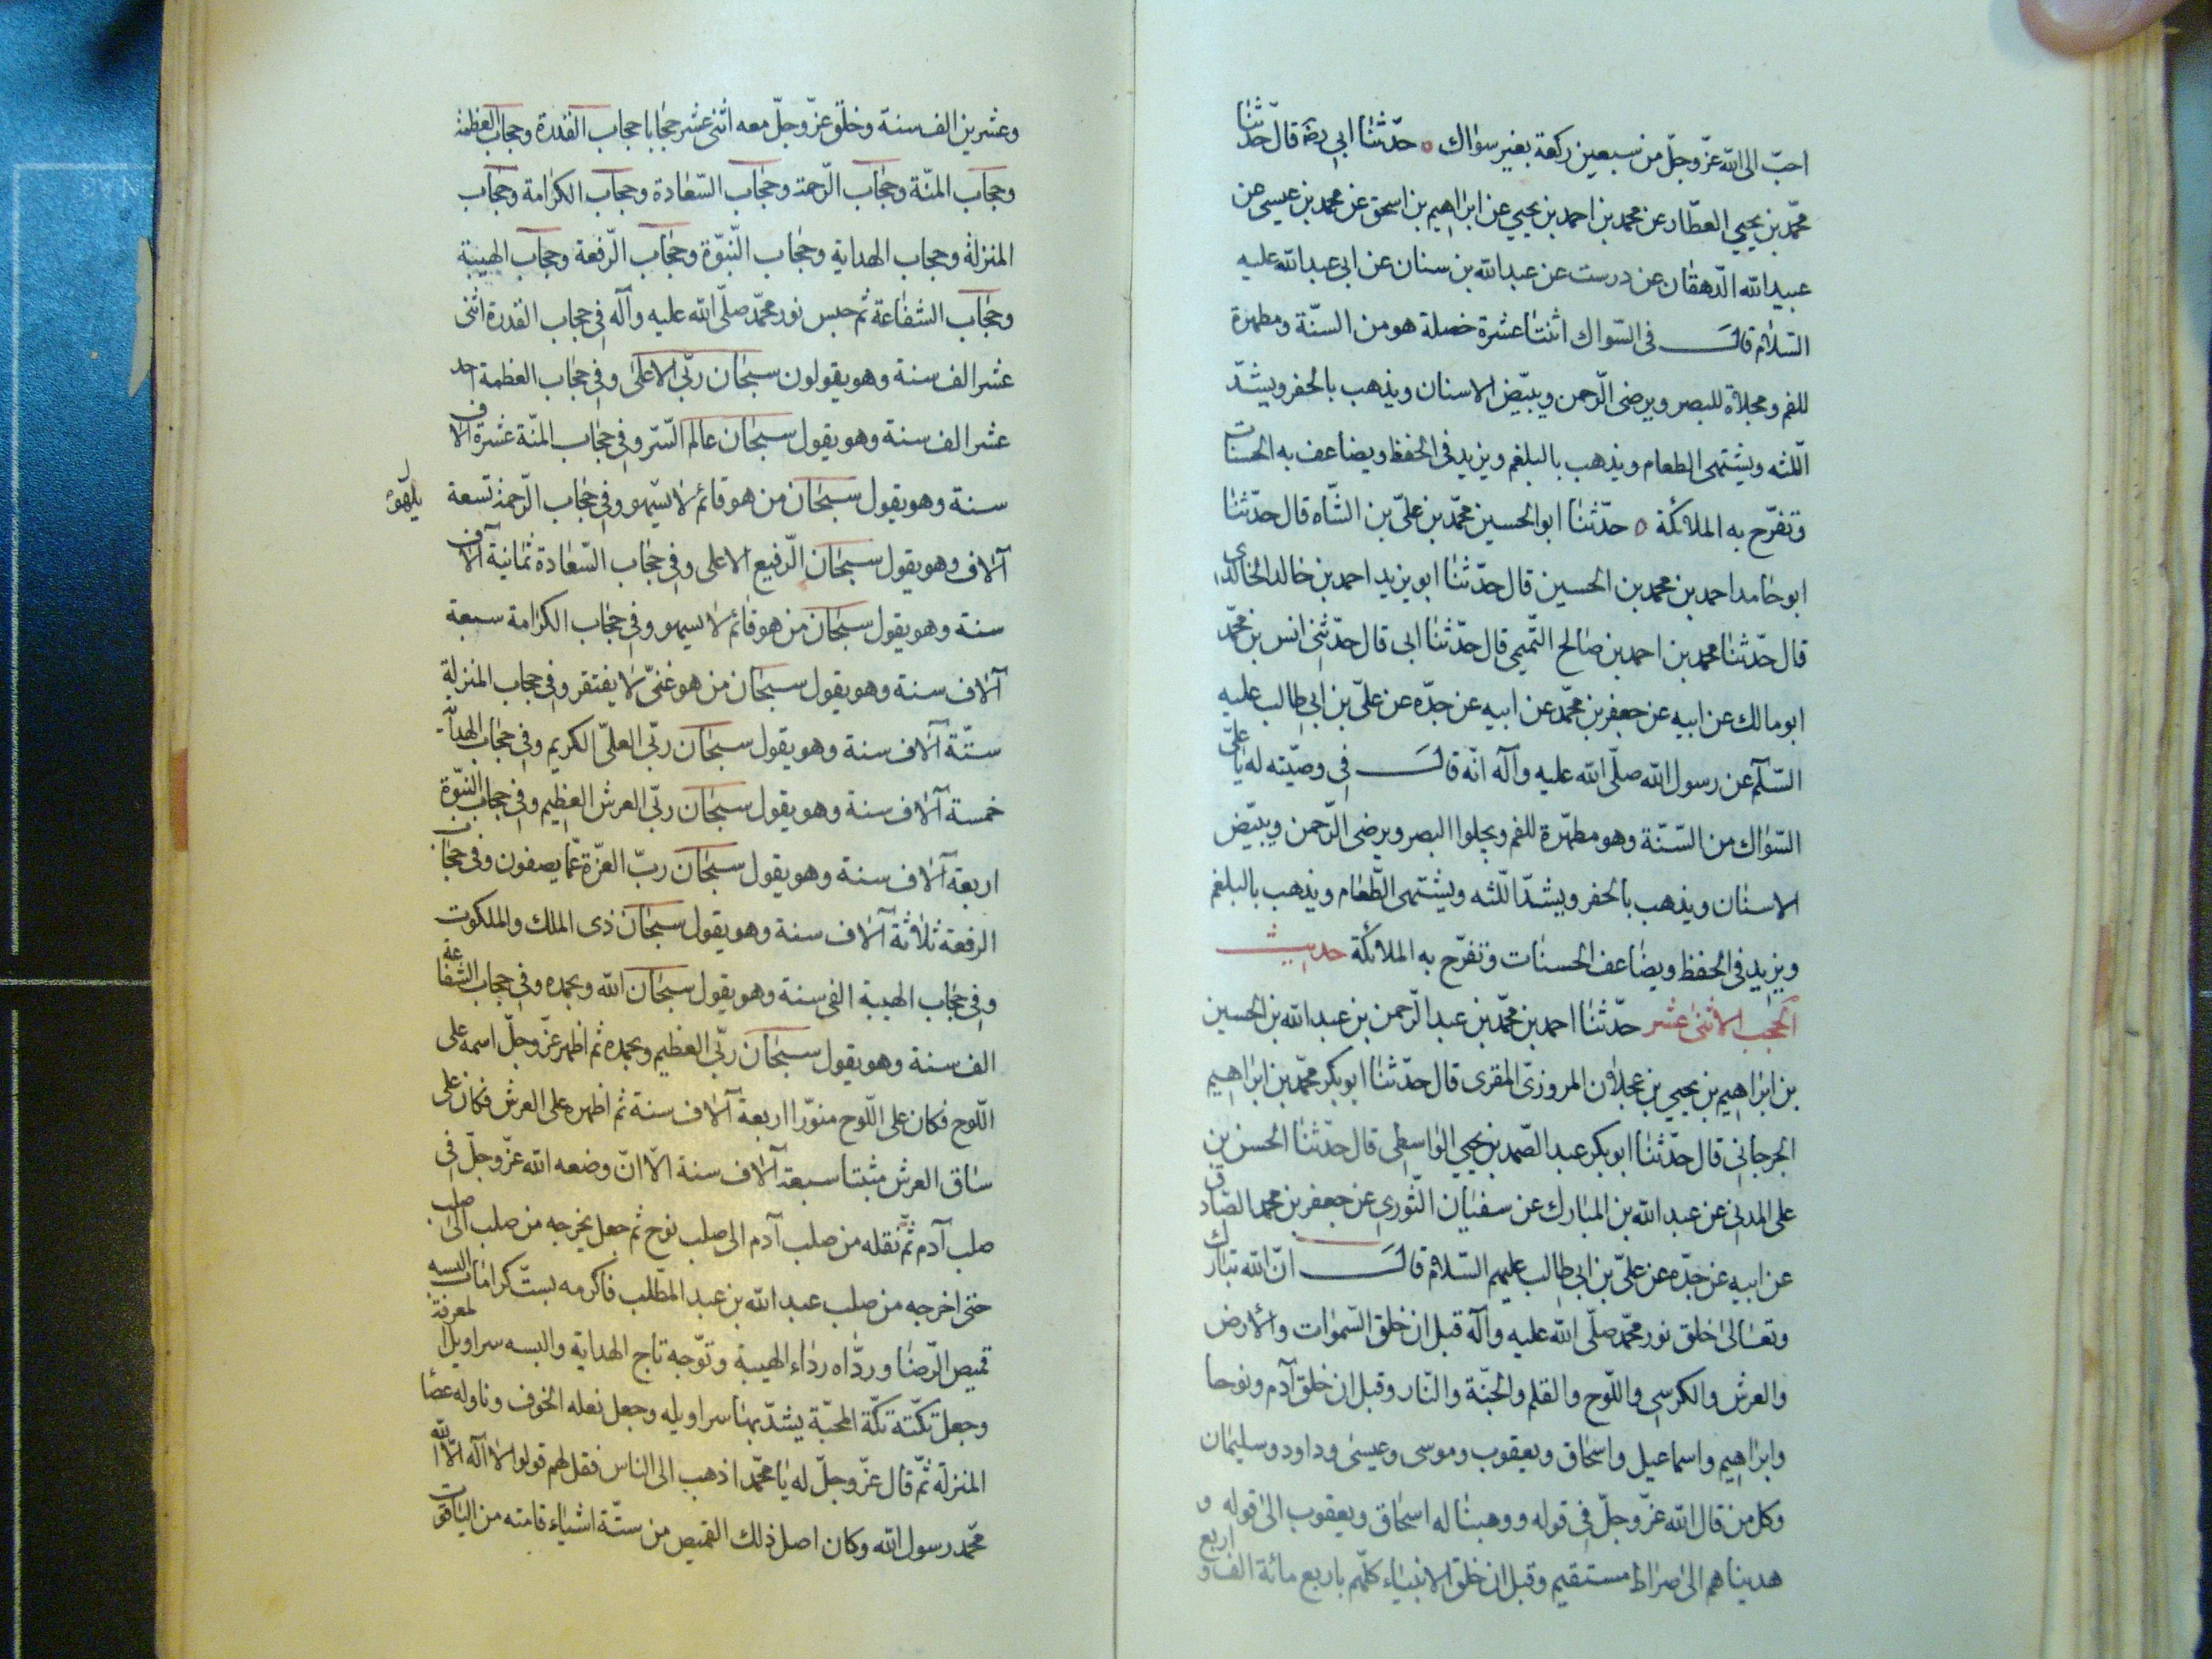 احبّ الى الله عزّ وجلّ من سبعين ركعة بغير سواك ه حدّثنا ابى رضه قال حدّثنا
محمّد بن يحيى العطّار عن محمد بن احمد بن يحيى عن ابراهيم بن اسحق عن محمد بن عيسى عن
عبيد الله الدّهقان عن درست عن عبد الله بن سنان عن ابى عبد الله عليه
السّلام قال فى السّواك اثنتا عشرة خصلة هو من السنّة ومطهرة
للفم ومجلاة للبصر ويرضى الرّحمن ويبيّض الاسنان ويذهب بالحفر ويشدّ
اللّثه ويشتهى الطعام ويذهب بالبلغم ويزيد فى الحفظ ويضاعف به الحسنات
وتفرّح به الملائكة ه حدّثنا ابو الحسين محمّد بن علىّ بن الشّاه قال حدّثنا
ابو حامد احمد بن محمد بن الحسين قال حدّثنا ابو يزيد احمد بن خالد الخالدى
قال حدّثنا محمد بن احمد بن صالح التّميمى قال حدّثنا ابى قال حدّثنى انس بن محمّد
ابو مالك عن ابيه عن جعفر بن محمّد عن ابيه عن جدّه عن علىّ بن ابى طالب عليه
السّلم عن رسول الله صلّى الله عليه وآله انّه قال فى وصيّته له يا علىّ
السّواك من السّنّة وهو مطهّرة للفم ويجلوا البصر ويرضى الرّحمن ويبيّض
الاسنان ويذهب بالحفر ويشدّ اللّثه ويشتهى الطّعام ويذهب بالبلغم
ويزيد فى الحفظ ويضاعف الحسنات وتفرّح به الملائكة حديث
الحجب الاثنى عشر حدّثنا احمد بن محمّد بن عبد الرّحمن بن عبد الله بن الحسين
بن ابراهيم بن يحيى بن عجلان المروزىّ المقرى قال حدّثنا ابو بكر محمّد بن ابراهيم
الجرجانى قال حدّثنا ابو بكر عبد الصّمد بن يحيى الواسطى قال حدّثنا الحسن بن
على المدنى عن عبد الله بن المبارك عن سفيان الثّورى عن جعفر بن محمد الصّادق
عن ابيه عن جدّه عن علىّ بن ابى طالب عليهم السّلام قال انّ الله تبارك
وتعالى خلق نور محمّد صلّى الله عليه وآله قبل ان خلق السّموات والأرض
والعرش والكرسى واللّوح والقلم والجنّة والنّار وقبل ان خلق آدم ونوحا
وابراهيم واسماعيل واسحاق ويعقوب وموسى وعيسى وداود وسليمان
وكل من قال الله عزّ وجلّ فى قوله ووهبنا له اسحاق ويعقوب الى قوله و
هديناهم الى صراط مستقيم وقبل ان خلق الانبياء كلّهم باربع مائة الف واربع
وعشرين الف سنة وخلق عزّ وجلّ معه اثنى عشر حجابا حجاب القدرة وحجاب العظمة
وحجاب المنّة وحجاب الرّحمة وحجاب السّعادة وحجاب الكرامة وحجاب
المنزلة وحجاب الهداية وحجاب النّبوّة وحجاب الرّفعة وحجاب الهيبة
وحجاب الشفاعة ثم حبس نور محمّد صلّى الله عليه وآله فى حجاب القدرة اثنى
عشر الف سنة وهو يقولون سبحان ربّى الاعلى وفى حجاب العظمة احد
عشر الف سنة وهو يقول سبحان عالم السّر وفى حجاب المنّة عشرة آلاف
سنة وهو يقول سبحان من هو قائم لا يسهو وفى حجاب الرّحمة تسعة
يلهو
آلاف وهو يقول سبحان الرّفيع الاعلى وفى حجاب السّعادة ثمانية آلاف
سنة وهو يقول سبحان من هو قائم لا يسهو وفى حجاب الكرامة سبعة
آلاف سنة وهو يقول سبحان من هو غنىّ لا يفتقر وفى حجاب المنزلة
ستّة آلاف سنة وهو يقول سبحان ربّى العلىّ الكريم وفى حجاب الهداية
خمسة آلاف سنة وهو يقول سبحان ربّى العرش العظيم وفى حجاب النبوّة
اربعة آلاف سنة وهو يقول سبحان ربّ العزّة عمّا يصفون وفى حجاب
الرفعة ثلاثة آلاف سنة وهو يقول سبحان ذى الملك والملكوت
وفى حجاب الهيبة الفى سنة وهو يقول سبحان الله وبحمده وفى حجاب الشفاعة
الف سنة وهو يقول سبحان ربّى العظيم وبحمده ثم اظهر عزّ وجلّ اسمه على
اللّوح فكان على اللّوح منوّرا اربعة آلاف سنة ثم اظهره على العرش فكان على
ساق العرش مثبتا سبعة آلاف سنة الّا انّ وضعه الله عزّ وجلّ فى
صلب آدم ثمّ نقله من صلب آدم الى صلب نوح ثم جعل يخرجه من صلب الى صلب
حتى اخرجه من صلب عبد الله بن عبد المطّلب فاكرمه بستّ كرامات البسه
قميص الرّضا وردّاه رداء الهيبة وتوّجه تاج الهداية والبسه سراويل المعرفة
وجعل تكّته تكّة المحبّة يشدّ بها سراويله وجعل نعله الخوف وناوله عصا
المنزلة ثمّ قال عزّ وجلّ له يا محمّد اذهب الى الناس فقل لهم قولوا لا اله الّا الله
محمّد رسول الله وكان اصل ذلك القميص من ستّة اشياء قامته من الياقوت